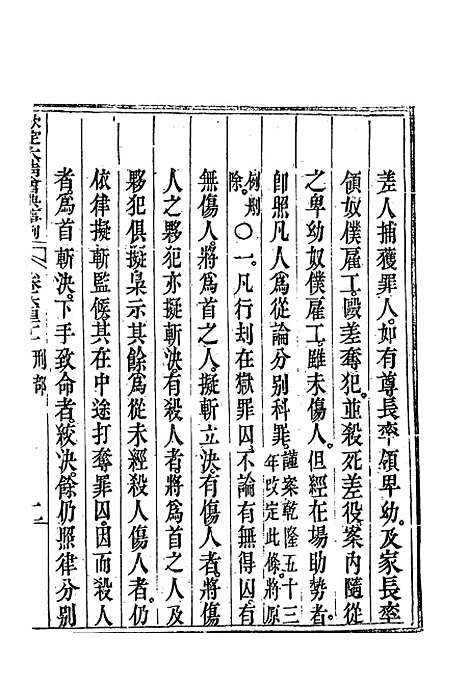 差人捕獲罪人。如有尊長率領卑幼。及家長率
領奴僕雇工。毆差奪犯。並殺死差役。案內隨從
之卑幼奴僕雇工。雖未傷人。但經在場助勢者。
卽照凡人爲從論。分別科罪。謹案乾隆五十三年改定此條。將原
例刪除。〇一。凡行劫在獄罪囚。不論有無得囚。有
無傷人。將爲首之人。擬斬立決。有傷人者。將傷
人之夥犯。亦擬斬決。有殺人者。將爲首之人及
夥犯俱擬梟示。其餘爲從未經殺人傷人者。仍
依律擬斬監候。其在中途打奪罪囚。因而殺人
者。爲首斬決。下手致命者。絞決。餘仍照律分別
欽定大清會典事例 刑部